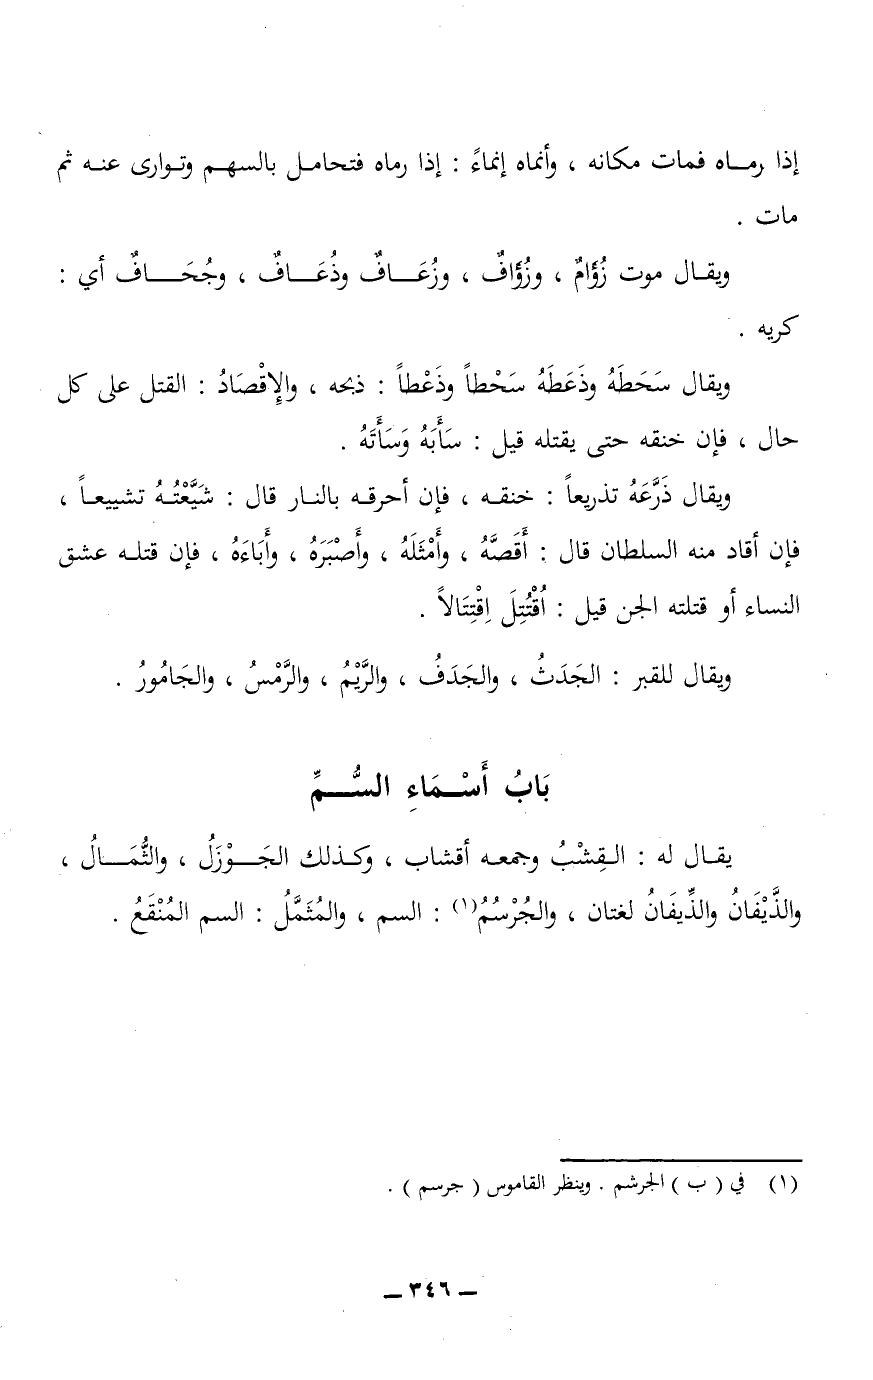 إذا رمـاه فمات مكانه ، وأنماه إنماءً : إذا رماه فتحامـل بالسهـم وتـوارى عنـه ثم
مات .
ويقـال موت زُؤَامٌ ، وزُؤَافٌ ، وزُعَـــافٌ وذُعَـــافٌ ، وجُحَـــافٌ أي :
كريه .
ويقال سَحَطَهُ وذَعَطَهُ سَحْطاً وذَعْطاً : ذبحه ، والإِقْصَادُ : القتل على كل
حال ، فإن خنقه حتى يقتله قيل : سَأَبَهُ وَسَأَتَهُ .
ويقال ذَرَّعَهُ تذريعاً : خنقـه ، فإن أحرقـه بالنـار قال : شَيَّعْتُـهُ تشييعـاً ،
فإن أقاد منه السلطان قال : أَقَصَّهُ ، وأَمْثَلَهُ ، وأَصْبَرَهُ ، وأَبَاءَهُ ، فإن قتلـه عشق
النساء أو قتلته الجن قيل : اُقْتُتِلَ اِقْتِتَالاً .
ويقال للقبر : الجَدَثُ ، والجَدَفُ ، والرَّيْمُ ، والرَّمْسُ ، والجَامُورُ .
بَابُ أَسْـمَاءِ السُّـــمِّ
يقـال له : الـقِشْبُ وجمعـه أقشاب ، وكـذلك الجَـوْزَلُ ، والثُّمَـــالُ ،
والذَّيْفَانُ والذِّيفَانُ لغتان ، والجُرْسُمُ(١) : السم ، والمُثَمَّلُ : السم المُنْقَعُ .
(١) في ( ب ) الجرشم . وينظر القاموس ( جرسم ) .
ــ ٣٤٦ ــ